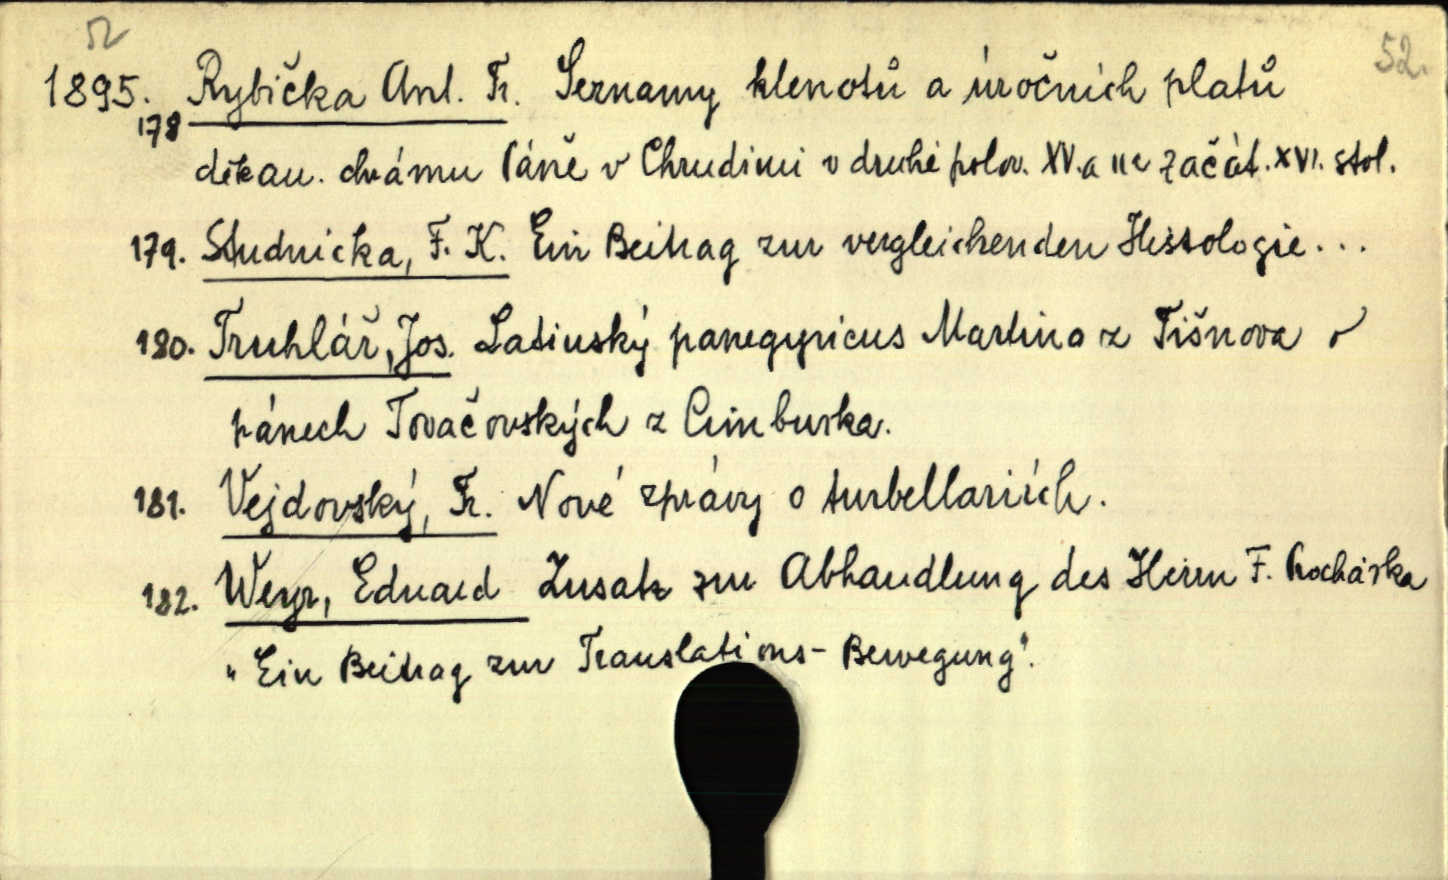 52.
1895. Rybička Ant. Fr. Seznamy klenotů a úročních platů
178
děkan. chrámu Páně v Chrudimi v druhé polov. XV. a na začát. XVI. stol.
179. Studnicka, F. K. Ein Beitrag zur vergleichenden Histologie...
180. Truhlář, Jos. Latinský panegyricus Martina z Tišnova o
pánech Tovačovských z Cimburka.
181. Vejdovský, Fr. Nové zprávy o turbellariích.
182. Weyr, Eduard Zusatz zur Abhandlung des Herrn F. Procházka
"Ein Beitrag zur Translations-Bewegung".